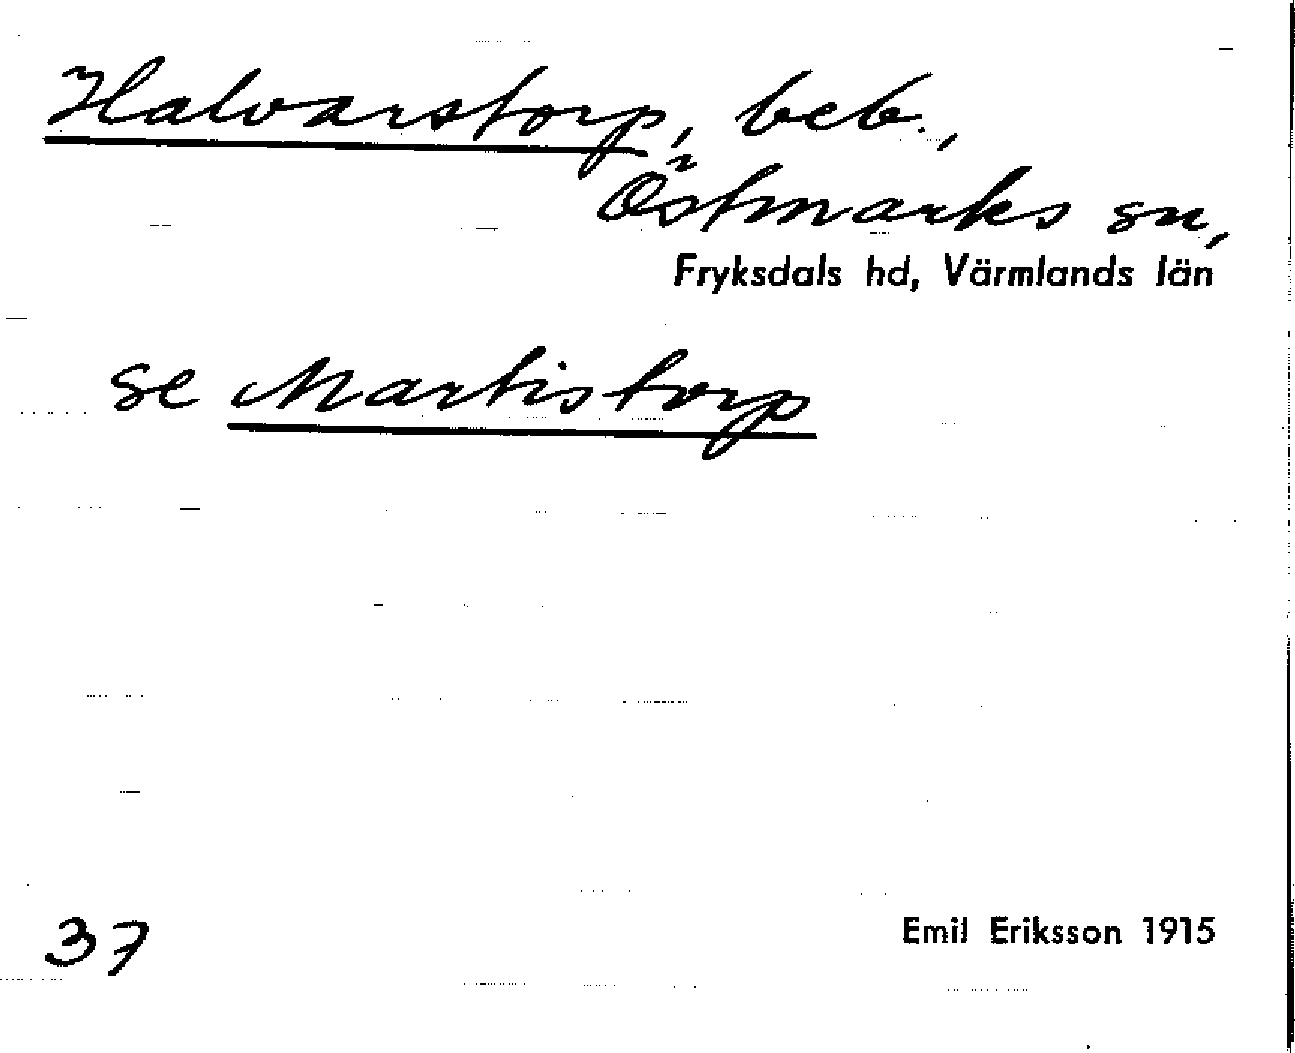 Halvarstorp, beb.,
Östmarks sn,
Fryksdals hd, Värmlands län
se Martistorp
37
Emil Eriksson 1915